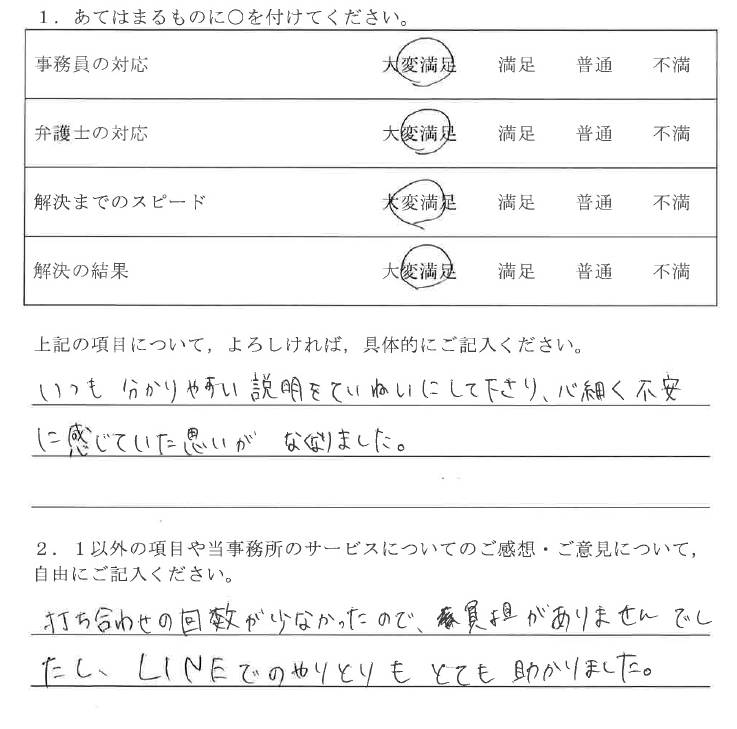 1．あてはまるものに○を付けてください。
事務員の対応 大変満足 満足 普通 不満
弁護士の対応 大変満足 満足 普通 不満
解決までのスピード 大変満足 満足 普通 不満
解決の結果 大変満足 満足 普通 不満
上記の項目について，よろしければ，具体的にご記入ください。
いつも 分かりやすい 説明をていねいにして下さり、心細く 不安
に感じていた思いが なくなりました。
2．1以外の項目や当事務所のサービスについてのご感想・ご意見について，
自由にご記入ください。
打ち合わせの回数が少なかったので、負担がありませんでし
たし、LINEでのやりとりも とても 助かりました。